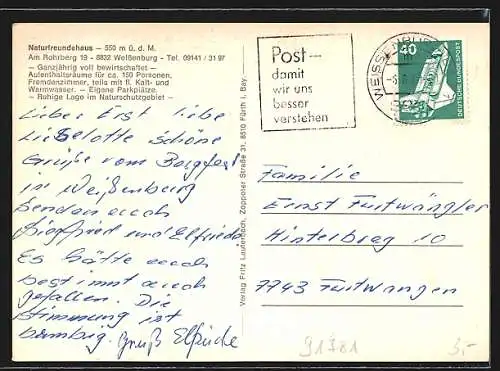 Naturfreundehaus — 550 m ü. d. M.
Am Rohrberg 19 - 8832 Weißenburg - Tel. 09141 / 31 97
— Ganzjährig voll bewirtschaftet —
Aufenthaltsräume für ca. 150 Personen,
Fremdenzimmer, teils mit fl. Kalt- und
Warmwasser. — Eigene Parkplätze.
- Ruhige Lage im Naturschutzgebiet -
Lieber Ernst liebe
Lieselotte Schöne
Grüße vom Bergfest
in Weißenburg
senden euch
Siegfried und Elfriede
Es hätte euch
bestimmt auch
gefallen. Die
Stimmung ist
bombig. Gruß Elfriede
Verlag Fritz Lauterbach, Zoppoter Straße 31, 8510 Fürth i. Bay.
Post —
damit
wir uns
besser
verstehen
WEISSENBURG
40
DEUTSCHE BUNDESPOST
Familie
Ernst Furtwängler
Hinterbreg 10
7743 Furtwangen
91781
3,-